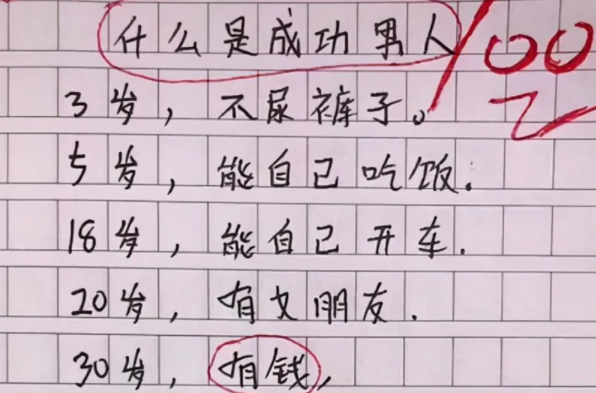 什么是成功男人 100
3岁，不尿裤子。
5岁，能自己吃饭.
18岁，能自己开车.
20岁，有女朋友.
30岁，有钱，